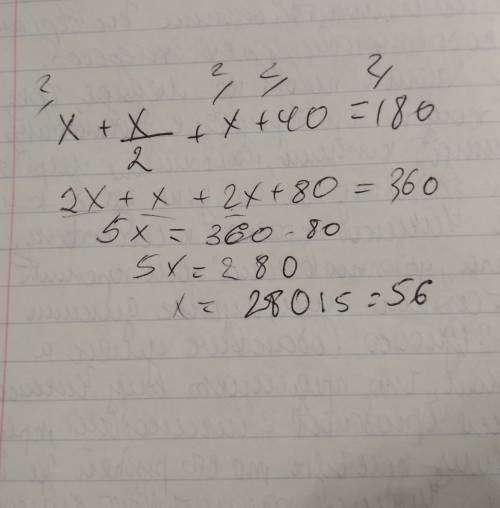 2, 2, 2, 2,
x + x/2 + x + 40 = 180
2x + x + 2x + 80 = 360
5x = 360 - 80
5x = 280
x = 280 : 5 = 56